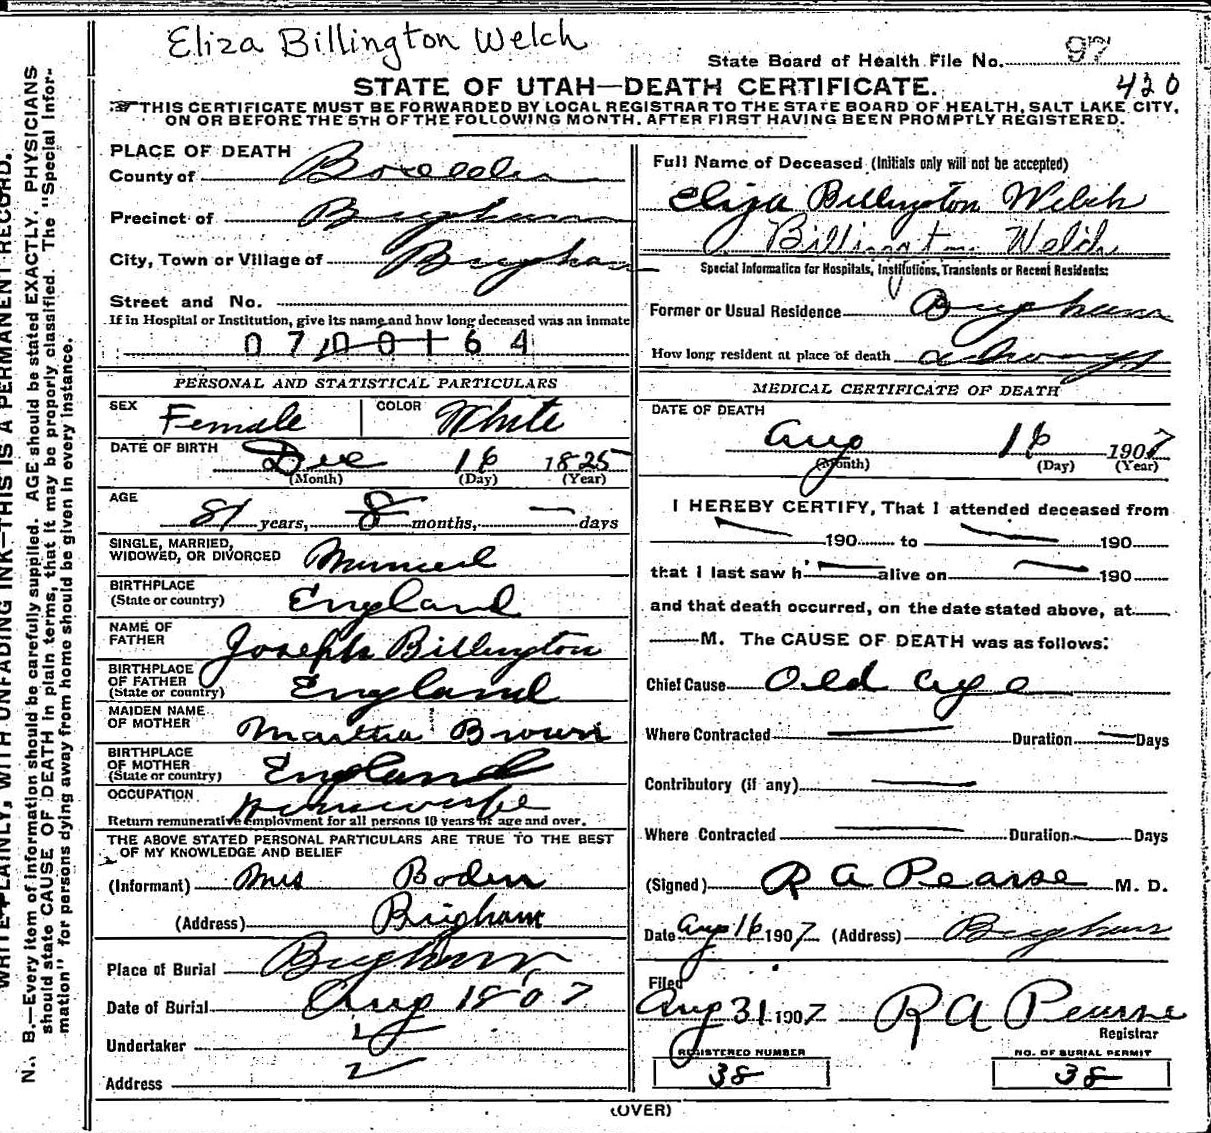 Eliza Billington Welch
State Board of Health File No. 97
420
STATE OF UTAH—DEATH CERTIFICATE.
THIS CERTIFICATE MUST BE FORWARDED BY LOCAL REGISTRAR TO THE STATE BOARD OF HEALTH, SALT LAKE CITY,
ON OR BEFORE THE 5TH OF THE FOLLOWING MONTH, AFTER FIRST HAVING BEEN PROMPTLY REGISTERED.
WRITE PLAINLY, WITH UNFADING INK—THIS IS A PERMANENT RECORD.
N. B.—Every item of information should be carefully supplied. AGE should be stated EXACTLY. PHYSICIANS
should state CAUSE OF DEATH in plain terms, that it may be properly classified. The "Special Infor-
mation" for persons dying away from home should be given in every instance.
PLACE OF DEATH
County of Boxelder
Precinct of Brigham
City, Town or Village of Brigham
Street and No.
If in Hospital or Institution, give its name and how long deceased was an inmate
0700164
PERSONAL AND STATISTICAL PARTICULARS
SEX Female COLOR White
DATE OF BIRTH Dec 16 1825
(Month) (Day) (Year)
AGE
81 years, 8 months, — days
SINGLE, MARRIED,
WIDOWED, OR DIVORCED Married
BIRTHPLACE
(State or country) England
NAME OF
FATHER Joseph Billington
BIRTHPLACE
OF FATHER
(State or country) England
MAIDEN NAME
OF MOTHER Martha Brown
BIRTHPLACE
OF MOTHER
(State or country) England
OCCUPATION Housewife
Return remunerative employment for all persons 10 years of age and over.
THE ABOVE STATED PERSONAL PARTICULARS ARE TRUE TO THE BEST
OF MY KNOWLEDGE AND BELIEF
(Informant) Mrs Boden
(Address) Brigham
Place of Burial Brigham
Date of Burial Aug 18 07
Undertaker
Address
Full Name of Deceased (Initials only will not be accepted)
Eliza Billington Welch
Billington Welch
Special Information for Hospitals, Institutions, Transients or Recent Residents:
Former or Usual Residence Brigham
How long resident at place of death always
MEDICAL CERTIFICATE OF DEATH
DATE OF DEATH
Aug 16 1907
(Month) (Day) (Year)
I HEREBY CERTIFY, That I attended deceased from
— 190 to — 190
that I last saw h — alive on — 190
and that death occurred, on the date stated above, at
— M. The CAUSE OF DEATH was as follows:
Chief Cause Old age
Where Contracted — Duration — Days
Contributory (if any) —
Where Contracted — Duration — Days
(Signed) R A Pearse M. D.
Date Aug 16 1907 (Address) Brigham
Filed
Aug 31 1907 R A Pearse
Registrar
REGISTERED NUMBER
38
NO. OF BURIAL PERMIT
38
(OVER)